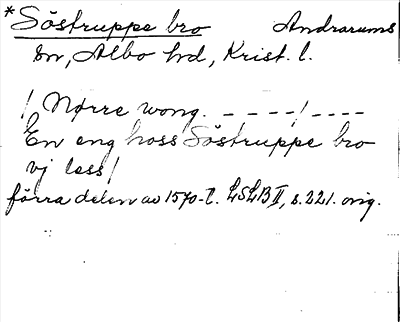 *Söstruppe bro Andrarums
sn, Albo hd, Krist. l.
/ Nørre wong. - - - - / - - - -
En eng hoss Söstruppe bro
vj less /
förra delen av 1570-t. LSLB II, s. 221. orig.